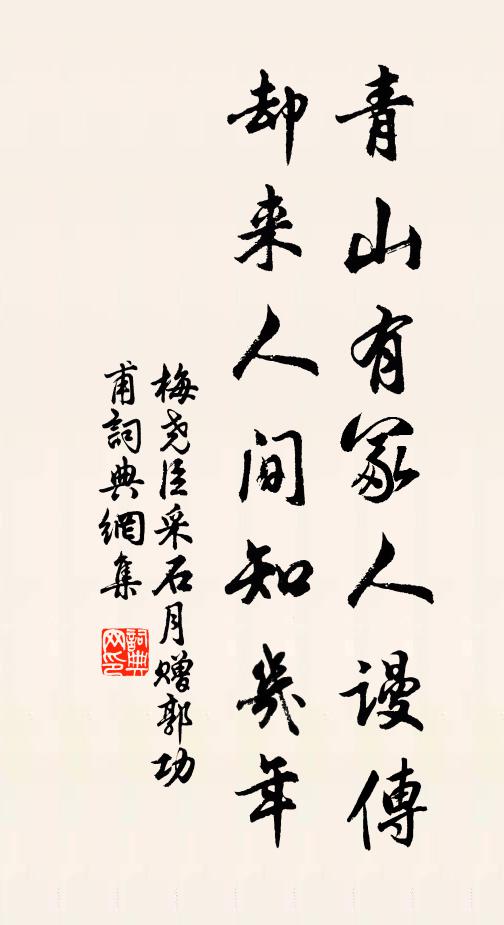 青山有冢人謾傳
却来人间知幾年
梅尧臣采石月赠郭功
甫詞典網集
詞典网印